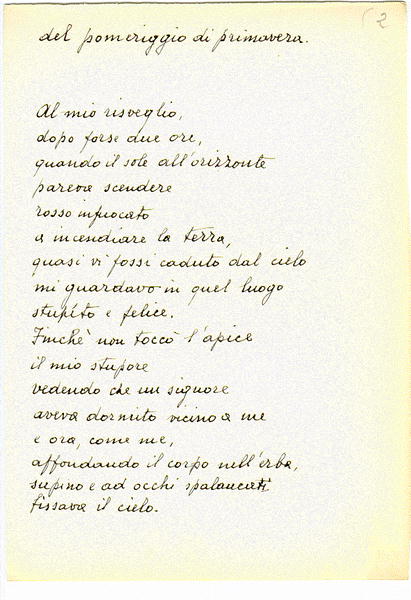 (2
del pomeriggio di primavera.
Al mio risveglio,
dopo forse due ore,
quando il sole all'orizzonte
pareva scendere
rosso infuocato
a incendiare la terra,
quasi vi fossi caduto dal cielo
mi guardavo in quel luogo
stupíto e felice.
Finchè non toccò l'apice
il mio stupore
vedendo che un signore
aveva dormito vicino a me
e ora, come me,
affondando il corpo nell'erba,
supino e ad occhi spalancati
fissava il cielo.